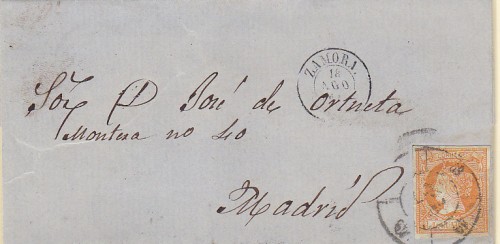 ZAMORA.
18
AGO
Sor D José de Ortueta
Montera no 40
Madrid
49
49